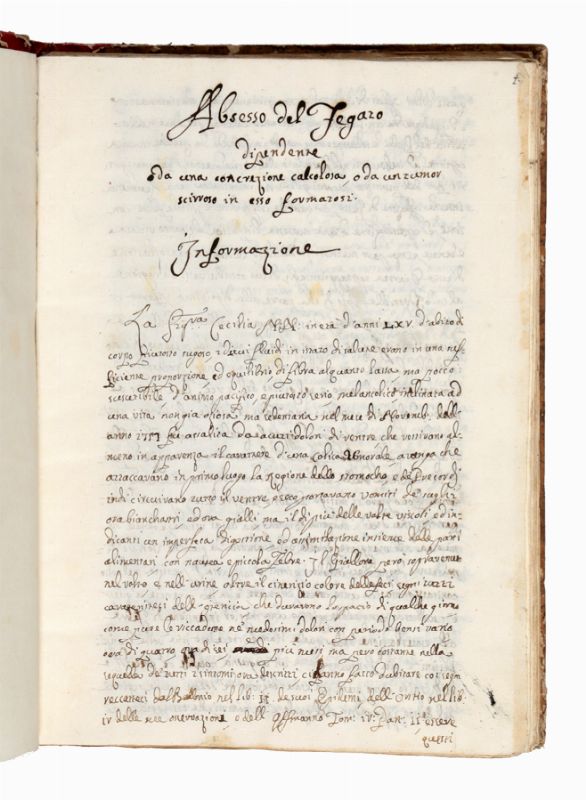 Absesso del Fegato
dipendente
o da una concrezione calcolosa, o da un tumor
scirroso in esso formatosi.
Informazione
La Sigra Cecilia N.N: in età d'anni LXV d'abito di
corpo piutosto i di cui fluidi in stato di salute erano in una suf-
ficiente proporzione, ed equilibrio di fibra alquanto lassa ma poco
suscettibile d'animo pacifico, e piutosto serio melancolico inclinata ad
una vita non già oziosa ma sedentaria nel mese di Novemb. dell'
anno 1757 fu assalita da acuti dolori di ventre che vestivano al-
meno in apparenza il carattere d'una Colica Umorale a tempo che
attaccavano in primo luogo la Regione dello stomacho, e de Precordj
indi circuivano tutto il ventre, e seco portavano vomiti
ora bianchastri ed ora gialli ma il di più delle volte viscidi ed in-
dicanti un imperfeta digestione ed assimilazione insieme delle parti
alimentari con nausea e picola febre. Il Giallore però sopravenuto
nel volto, e nell'urine oltre il cinerizio colore delle feci segni tutti
caratteristici dell' che duravano lo spacio di qualche giorno
come pure le ne medesimi dolori con periodo bensì vario
ora di quatro ora di sei più mesi ma però costante nella
sequella de tutti i sintomi ora descritti ci hanno fatto dubitare coi segni
dal Ballonio nel lib: II de suoi Epidemi, dell' nel lib:
IV delle sue osservazioni, o dell' Offmanno Tom: IV: Part: II essere
questi